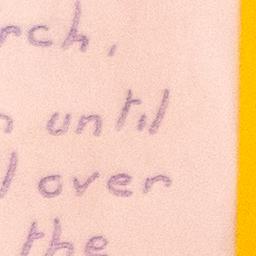 rch,
n until
l over
the